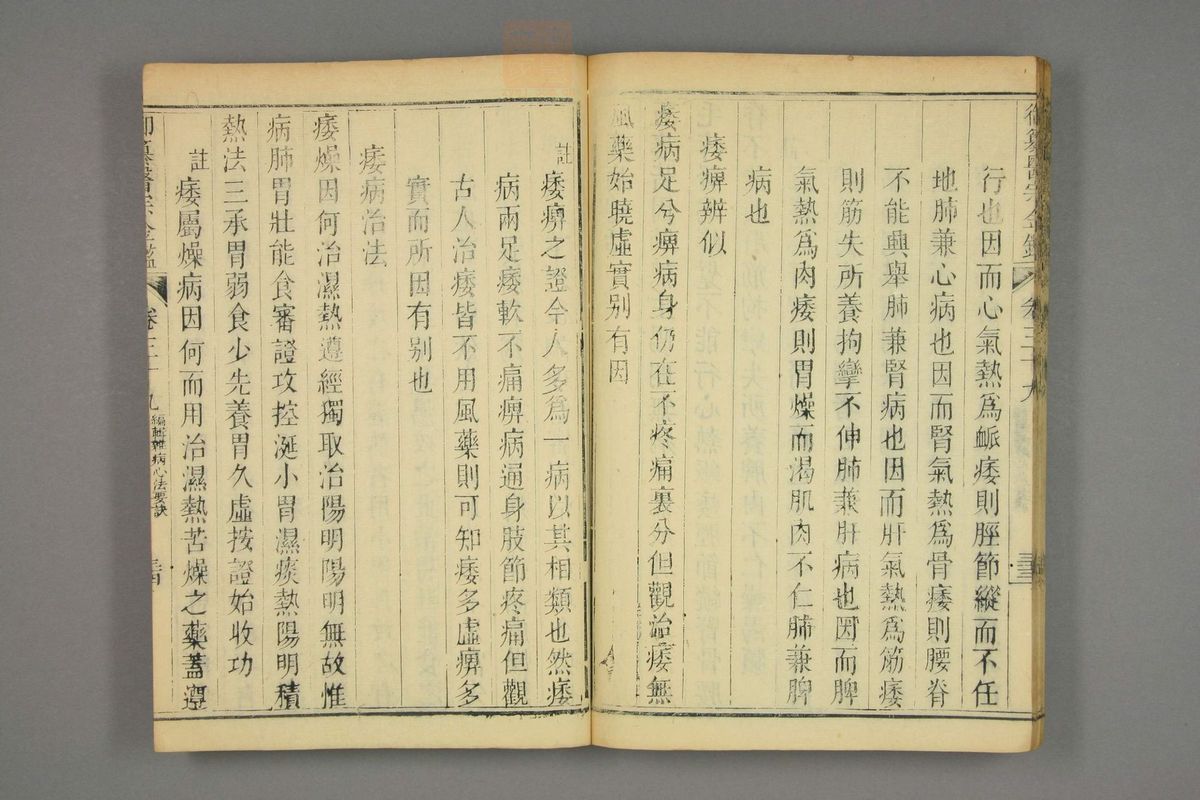 御纂醫宗金鑑 卷三十九
行也因而心氣熱爲脈痿則脛節縱而不任
地肺兼心病也因而腎氣熱爲骨痿則腰脊
不能興舉肺兼腎病也因而肝氣熱爲筋痿
則筋失所養拘攣不伸肺兼肝病也因而脾
氣熱爲肉痿則胃燥而渴肌肉不仁肺兼脾
病也
痿痹辨似
痿病足兮痹病身仍在不疼痛裏分但觀治痿無
風藥始曉虛實别有因
註
痿痹之證今人多爲一病以其相類也然痿
病兩足痿軟不痛痹病通身肢節疼痛但觀
古人治痿皆不用風藥則可知痿多虛痹多
實而所因有别也
痿病治法
痿燥因何治濕熱遵經獨取治陽明陽明無故惟
病肺胃壯能食審證攻控涎小胃濕痰熱陽明積
熱法三承胃弱食少先養胃久虛按證始收功
註
痿屬燥病因何而用治濕熱苦燥之藥蓋遵
御纂醫宗金鑑 卷三十九 編輯雜病心法要訣